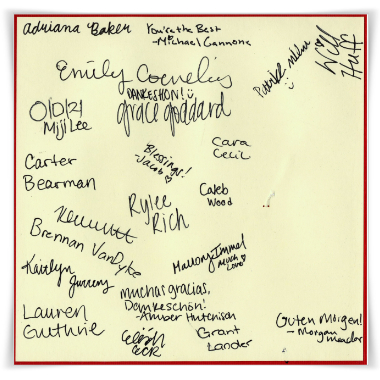 adriana Baker
You're the Best
-Michael Cannone
Will
Huff
Emily Cornelius
DANKESHON!
grace goddard
Miji Lee
Cara
Cecil
Blessings!
-Jacob
Carter
Bearman
Rylee
Rich
Caleb
Wood
Brennan VanDyke
Mallory Immel
much
Love
Kaitlyn
muchas gracias,
Dankeschön!
-Amber Hutchison
Lauren
Guthrie
Elijah
Eck
Grant
Lander
Guten Morgen!
- Morgan
Meador